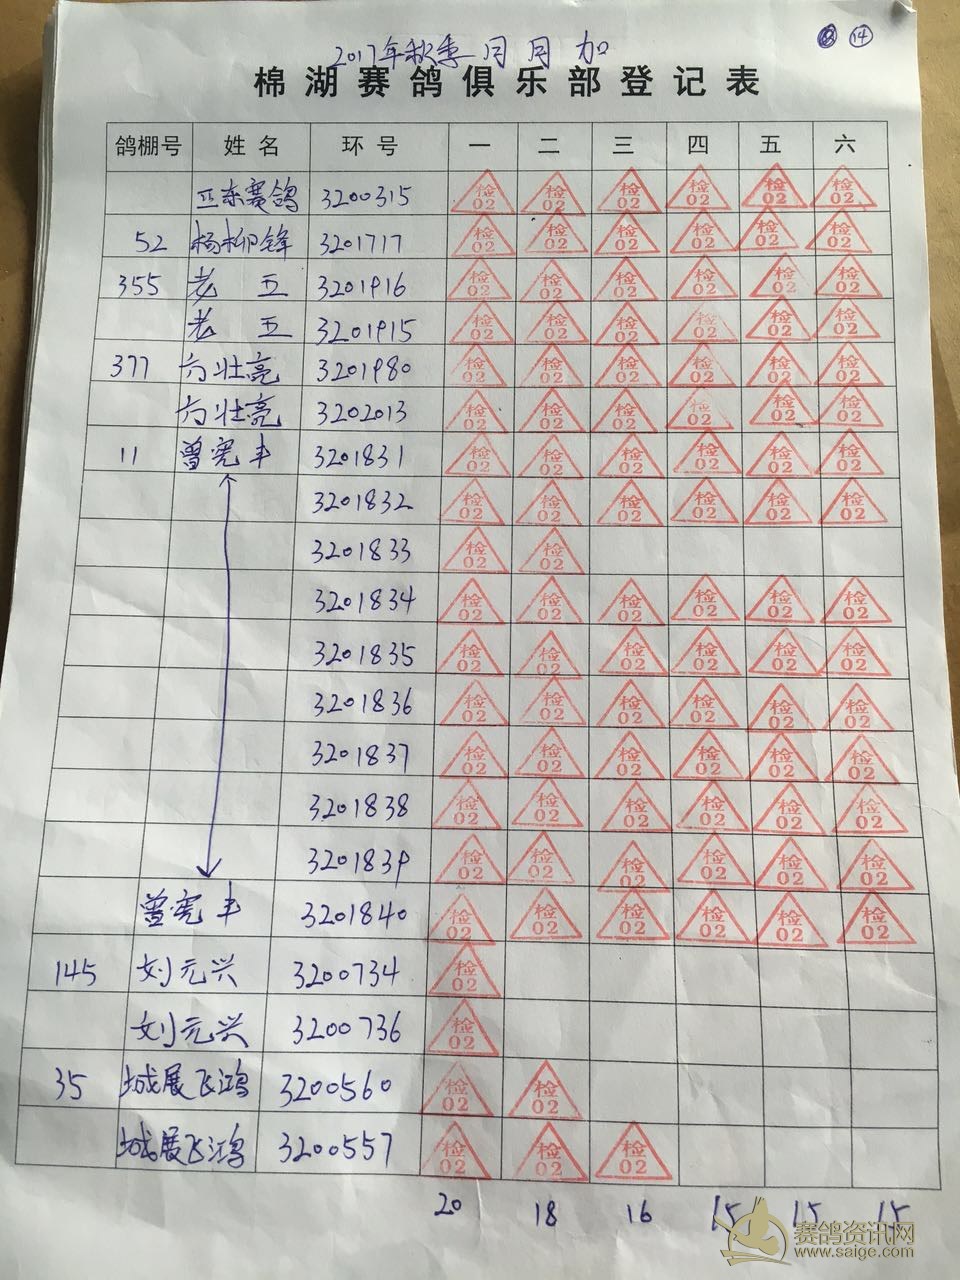 14
2017年秋季月月加
棉湖赛鸽俱乐部登记表
鸽棚号 姓名 环号 一 二 三 四 五 六
亚东赛鸽 3200315 检02 检02 检02 检02 检02 检02
52 杨柳锋 3201717 检02 检02 检02 检02 检02 检02
355 老五 3201916 检02 检02 检02 检02 检02 检02
老五 3201915 检02 检02 检02 检02 检02 检02
377 方壮亮 3201980 检02 检02 检02 检02 检02 检02
方壮亮 3202013 检02 检02 检02 检02 检02 检02
11 曾宪丰 3201831 检02 检02 检02 检02 检02 检02
3201832 检02 检02 检02 检02 检02 检02
3201833 检02 检02
3201834 检02 检02 检02 检02 检02 检02
3201835 检02 检02 检02 检02 检02 检02
3201836 检02 检02 检02 检02 检02 检02
3201837 检02 检02 检02 检02 检02 检02
3201838 检02 检02 检02 检02 检02 检02
3201839 检02 检02 检02 检02 检02 检02
曾宪丰 3201840 检02 检02 检02 检02 检02 检02
145 刘元兴 3200734 检02
刘元兴 3200736 检02
35 城展飞鸿 3200560 检02 检02
城展飞鸿 3200557 检02 检02 检02
20 18 16 15 15 15
赛鸽资讯网
www.saige.com